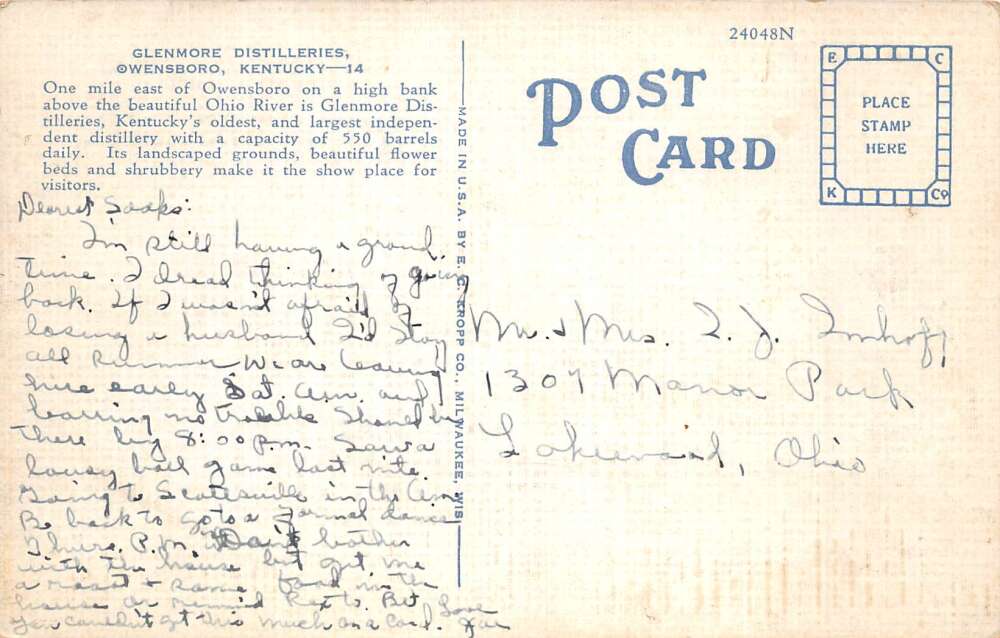 GLENMORE DISTILLERIES,
OWENSBORO, KENTUCKY—14
One mile east of Owensboro on a high bank
above the beautiful Ohio River is Glenmore Dis-
tilleries, Kentucky's oldest, and largest indepen-
dent distillery with a capacity of 550 barrels
daily. Its landscaped grounds, beautiful flower
beds and shrubbery make it the show place for
visitors.
Dearest
I'm still having a grand
time. I dread thinking of going
back. If I wasn't afraid of
losing a husband I'd stay
all summer We are leaving
here early Sat. A.M. and
barring no trouble should be
there by 8:00 P.M. Saw a
lousy ball game last nite.
Going to Scottsville in the A.M.
Be back to go to a formal dance
Thurs. P.M. Don't bother
with the house but get me
a roast & some food in the
house or remind Rex to. Bet
you couldn't get this much on a card. Love
MADE IN U.S.A. BY E. C. KROPP CO., MILWAUKEE, WIS.
24048N
POST
CARD
E C
PLACE
STAMP
HERE
K Co
Mr. & Mrs. L. J. Imhoff,
1307 Manor Park
Lakewood, Ohio